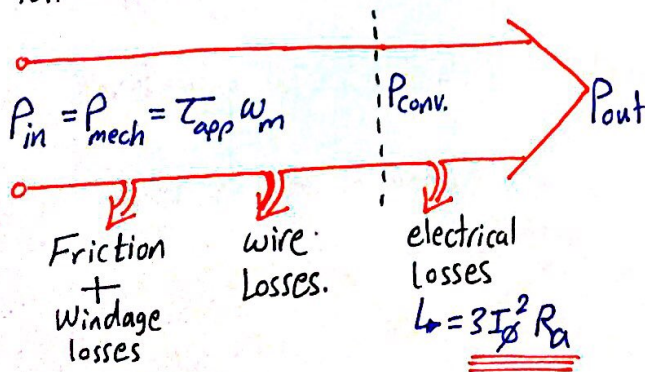 P_in = P_mech = τ_app ω_m
P_conv.
P_out
Friction
+
Windage
losses
wire
Losses.
electrical
losses
↳ = 3I_ϕ² R_a